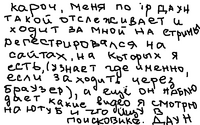 кароч, меня по ip даун
такой отслеживает и
ходит за мной на стримы
регестрировался на
сайтах, на которых я
есть, (узнает где именно,
если заходить через
браузер), а ещё он палю
дает какие видео я смотрю
на ютуб и что ищу в
поисковике. даун